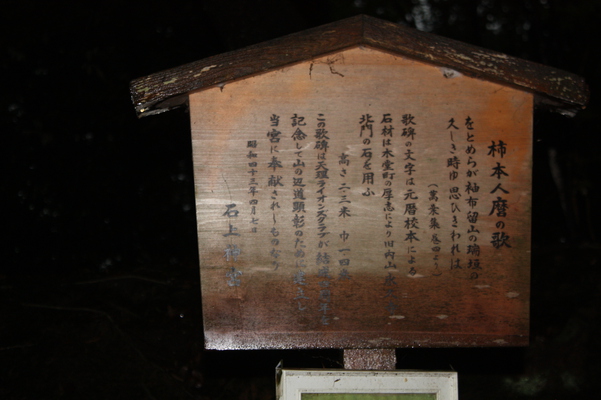 柿本人麿の歌
をとめらが袖布留山の瑞垣の
久しき時ゆ思ひきわれは
(萬葉集巻四より)
歌碑の文字は元暦校本による
石材は木堂町の厚志により旧内山
北門の石を用ふ
高さ二・三米 巾一・四米
この歌碑は天理ライオンズクラブが結成
記念して山の辺道顕彰のために
当宮に奉献されしものなり
昭和四十三年四月七日
石上神宮